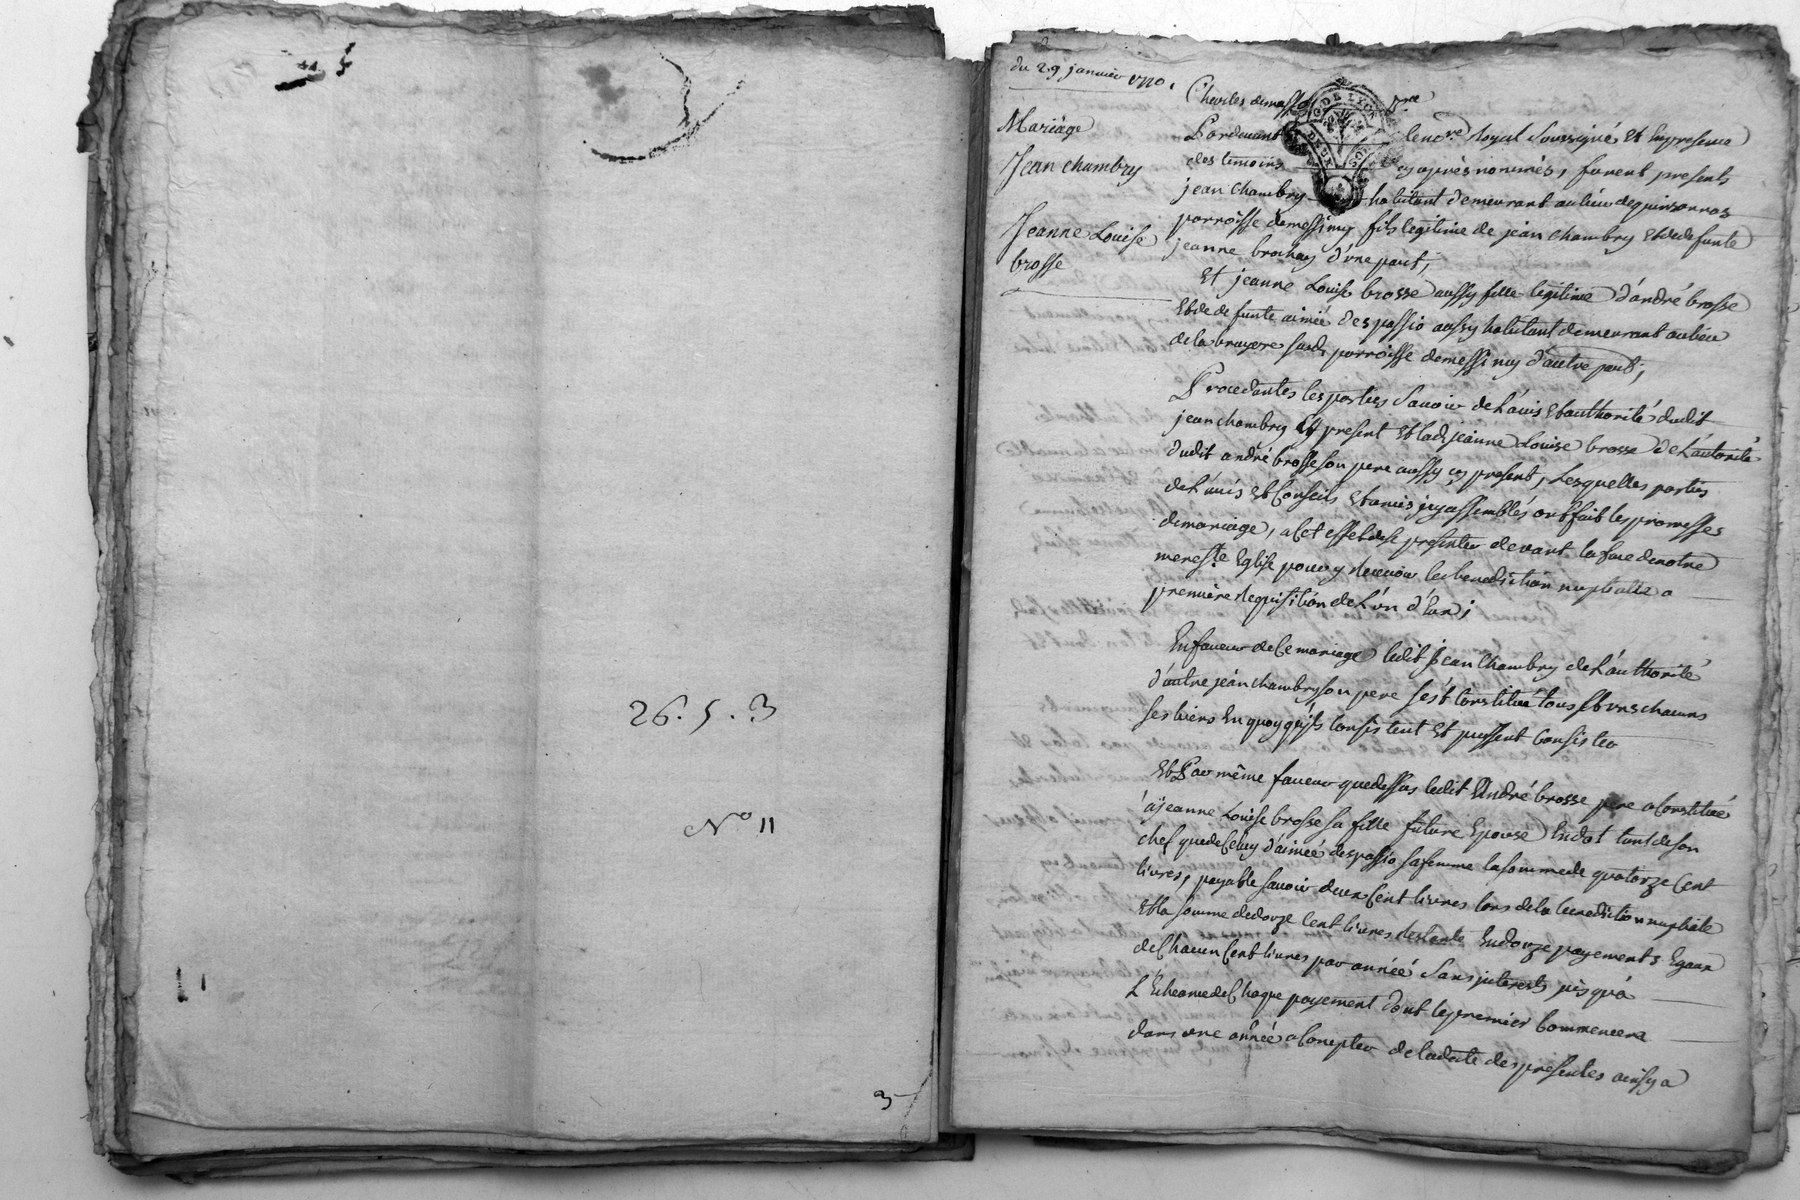 26. 5. 3
No 11
3
du 29 janvier 1770.
Mariage
Jean chambry
Jeanne Louise
brosse
Charles
Pardevant le nore Royal soussigné Et En presence
des temoins cy après nommés, furent presents
jean chambry habitant demeurant au lieu de quinsonnas
parroisse de messimy fils legitime de jean chambry Et de defunte
jeanne brochay d'une part,
Et jeanne Louise brosse aussy fille legitime d'andré brosse
Et de defunte aimée despassio aussy habitant demeurant au lieu
de la bruyere susd. parroisse de messimy d'autre part;
Procedantes les parties Savoir de L'avis Et authorité dudit
jean chambry Cy present Et lad. jeanne Louise brosse de L'autorité
dudit andré brosse son pere aussy cy present, Lesquelles parties
de L'avis Et Conseils Et amis jcy assemblés ont fait les promesses
de mariage, a Cet effet de se presenter devant la face de notre
mere Ste Eglise pour y Recevoir la benediction nuptialle a
premiere Requisition de L'un d'Eux;
En faveur de Ce mariage ledit Jean Chambry de L'authorité
d'autre jean chambry son pere s'est Constitué tous Et uns chacuns
ses biens En quoy qu'jls Consistent Et puissent Consister
Et Par même faveur que dessus ledit André brosse pere a Constitué
à jeanne Louise brosse sa fille future Epouse En dot tant de son
chef que de Celuy d'aimée despassio sa femme la somme de quatorze Cent
livres, payable savoir deux Cent livres lors de la benediction nuptiale
Et la somme de douze Cent livres Restante En douze payements Egaux
de Chacun Cent livres par année Sans jnterests jusqu'à
L'Echeance de Chaque payement dont le premier Commencera
dans une année a Compter de la date des presentes ainsy a